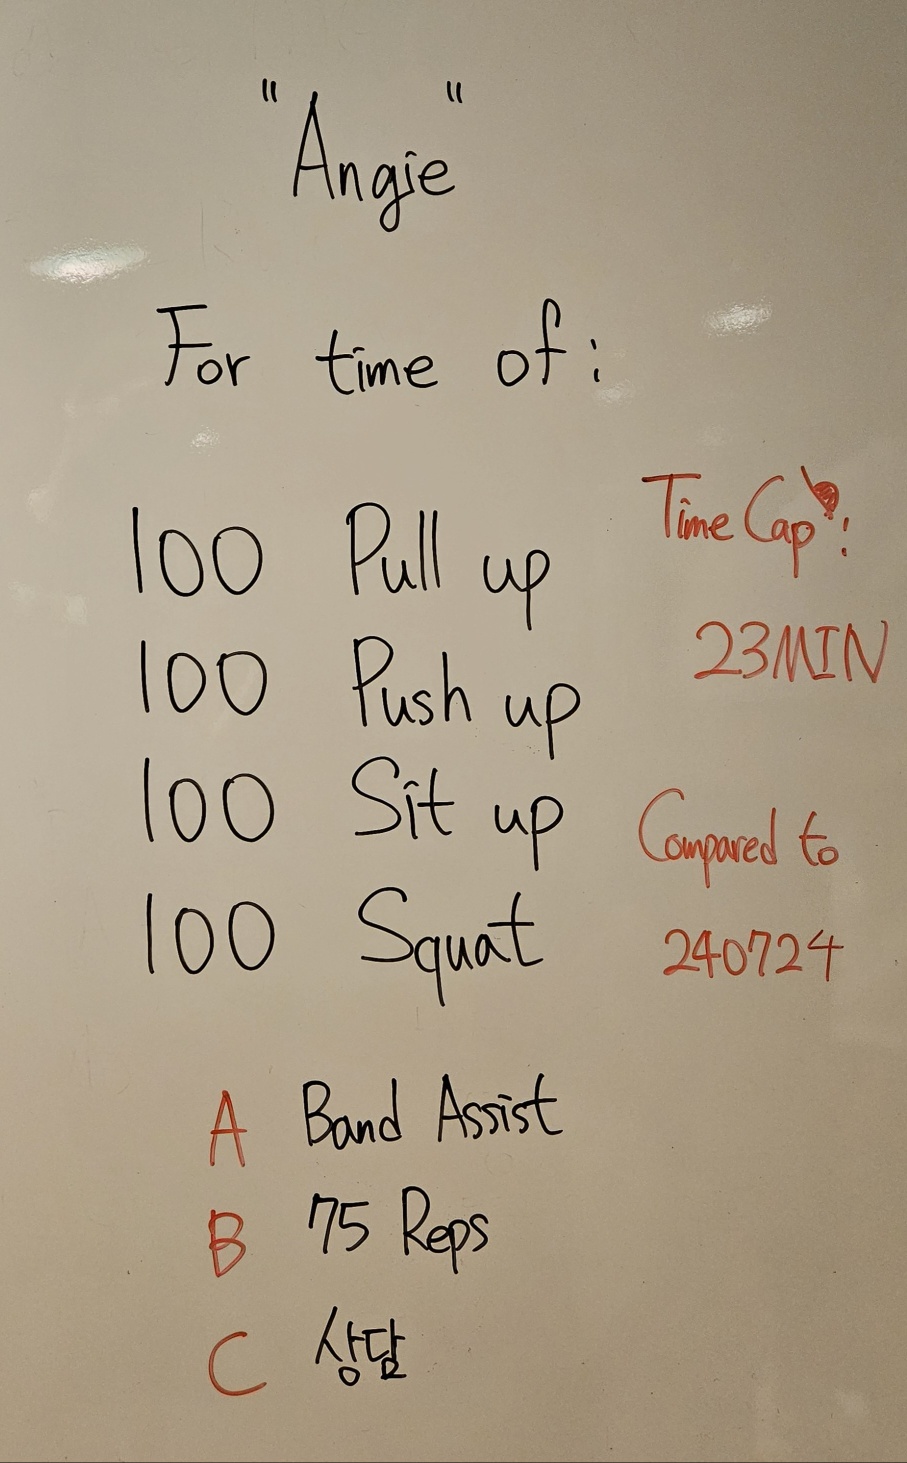 "Angie"
For time of:
100 Pull up
100 Push up
100 Sit up
100 Squat
Time Cap:
23MIN
Compared to
240724
A Band Assist
B 75 Reps
C 상담